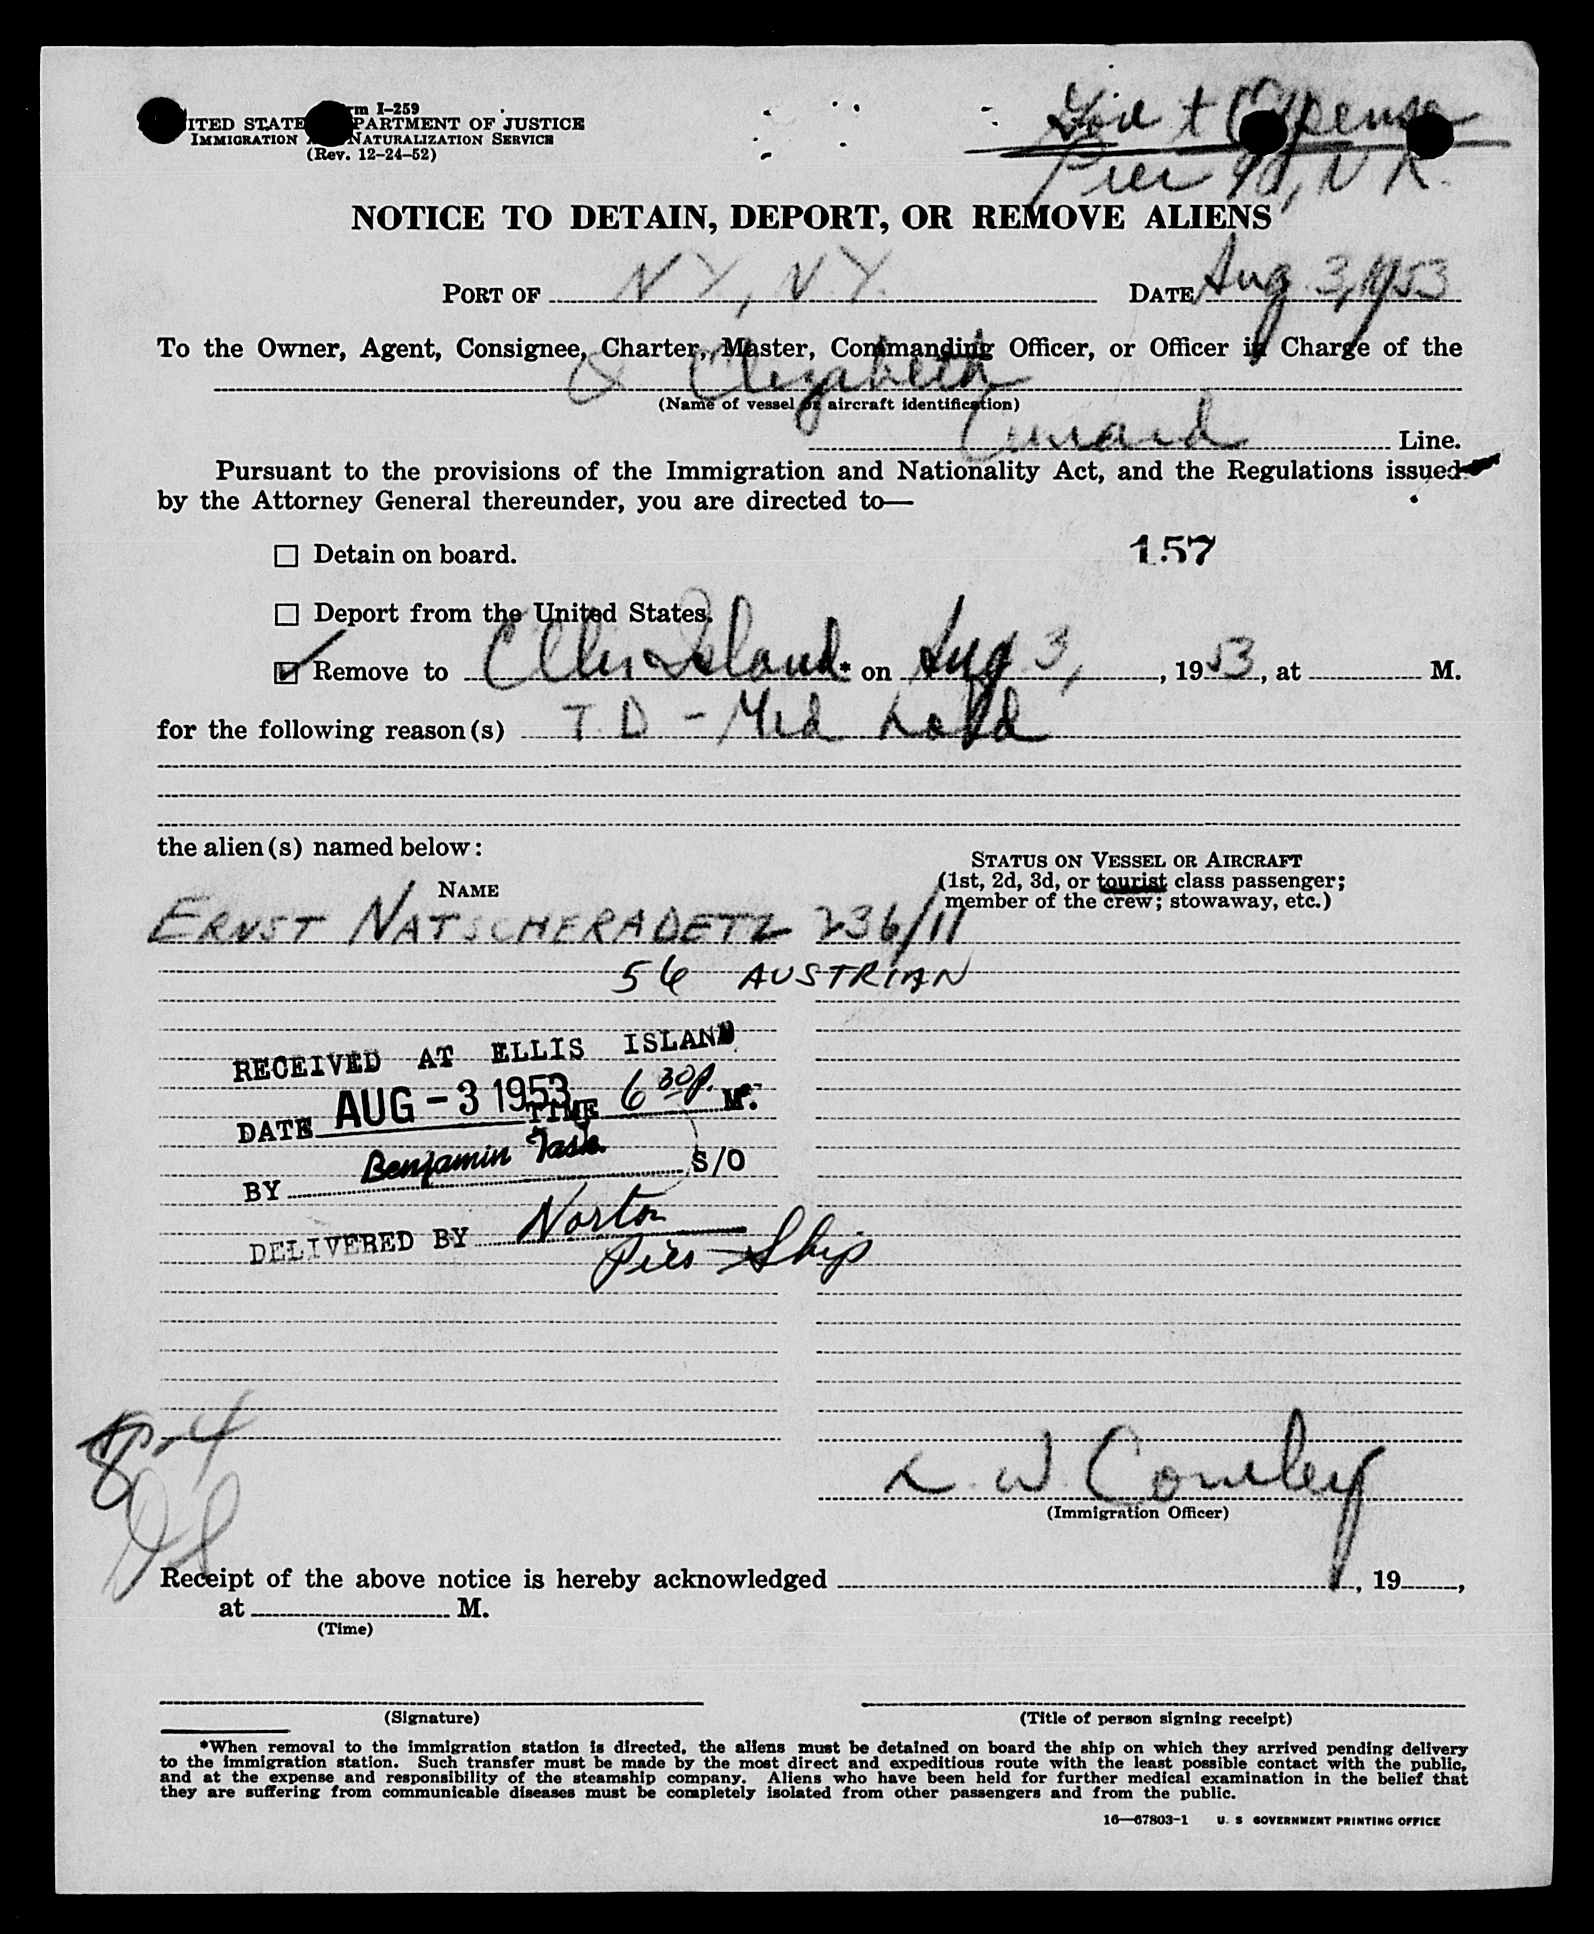 Form I-259
UNITED STATES DEPARTMENT OF JUSTICE
IMMIGRATION AND NATURALIZATION SERVICE
(Rev. 12-24-52)
+ Expense
Pier 90, N R.
NOTICE TO DETAIN, DEPORT, OR REMOVE ALIENS
PORT OF N Y, N. Y. DATE Aug 3, 1953
To the Owner, Agent, Consignee, Charter, Master, Commanding Officer, or Officer in Charge of the
Q Elizabeth
(Name of vessel or aircraft identification)
Cunard Line.
Pursuant to the provisions of the Immigration and Nationality Act, and the Regulations issued
by the Attorney General thereunder, you are directed to—
☐ Detain on board.
157
☐ Deport from the United States.
☑ Remove to Ellis Island* on Aug 3, , 1953, at M.
for the following reason(s) T. D - Med Hold
the alien(s) named below:
STATUS ON VESSEL OR AIRCRAFT
(1st, 2d, 3d, or tourist class passenger;
member of the crew; stowaway, etc.)
NAME
ERNST NATSCHERADETZ 236/11
56 AUSTRIAN
RECEIVED AT ELLIS ISLAND
DATE AUG - 3 1953 TIME 6 30 P. M.
BY Benjamin Task S/O
DELIVERED BY Norton
Pier - Ship
8-4
L. W. Cowley
(Immigration Officer)
Receipt of the above notice is hereby acknowledged , 19 ,
at M.
(Time)
(Signature) (Title of person signing receipt)
*When removal to the immigration station is directed, the aliens must be detained on board the ship on which they arrived pending delivery
to the immigration station. Such transfer must be made by the most direct and expeditious route with the least possible contact with the public,
and at the expense and responsibility of the steamship company. Aliens who have been held for further medical examination in the belief that
they are suffering from communicable diseases must be completely isolated from other passengers and from the public.
16—67803-1 U. S GOVERNMENT PRINTING OFFICE